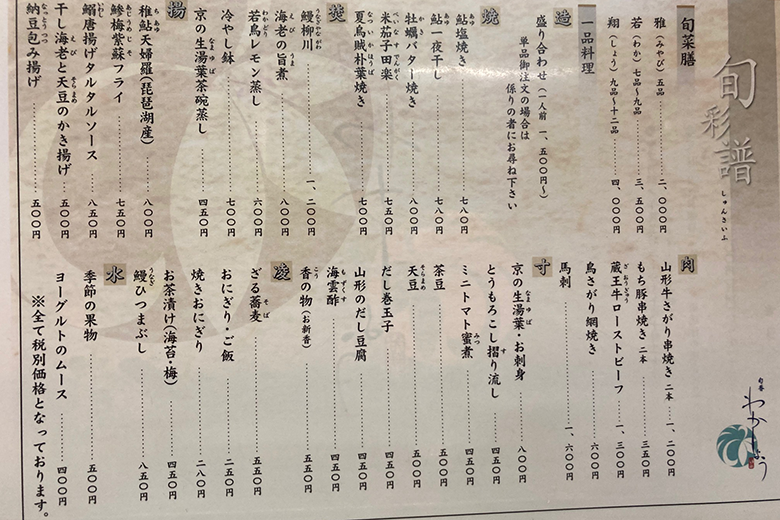 旬彩譜
しゅんさいふ
旬菜膳
雅（みやび）五品 二、〇〇〇円
若（わか）七品～九品 三、五〇〇円
翔（しょう）九品～十二品 四、〇〇〇円
一品料理
造
盛り合わせ（一人前 一、五〇〇円～）
単品御注文の場合は
係りの者にお尋ね下さい
焼
鮎塩焼き 七八〇円
鮎一夜干し 七八〇円
牡蠣バター焼き 八〇〇円
米茄子田楽 七〇〇円
夏鳥賊朴葉焼き 七五〇円
焚
鰻柳川 一、二〇〇円
海老の旨煮 七〇〇円
若鳥レモン蒸し 六〇〇円
冷やし鉢 七〇〇円
京の生湯葉茶碗蒸し 四五〇円
揚
稚鮎天婦羅（琵琶湖産） 八〇〇円
鯵梅紫蘇フライ 七五〇円
鰯唐揚げタルタルソース 八五〇円
干し海老と天豆のかき揚げ 五〇〇円
納豆包み揚げ 五〇〇円
肉
山形牛さがり串焼き 二本 一、二〇〇円
もち豚串焼き 二本 三五〇円
蔵王牛ローストビーフ 一、三〇〇円
鳥さがり網焼き 六〇〇円
馬刺 一、六〇〇円
寸
京の生湯葉・お刺身 八〇〇円
とうもろこし摺り流し 四五〇円
ミニトマト蜜煮 四五〇円
茶豆 五五〇円
天豆 五五〇円
だし巻玉子 五五〇円
山形のだし豆腐 四五〇円
海雲酢 四五〇円
香の物（お新香） 四五〇円
凌
ざる蕎麦 五五〇円
おにぎり・ご飯 二五〇円
焼きおにぎり 二八〇円
お茶漬け（海苔・梅） 四五〇円
鰻ひつまぶし 八五〇円
水
季節の果物 五〇〇円
ヨーグルトのムース 四〇〇円
※全て税別価格となっております。
旬香
わかしょう